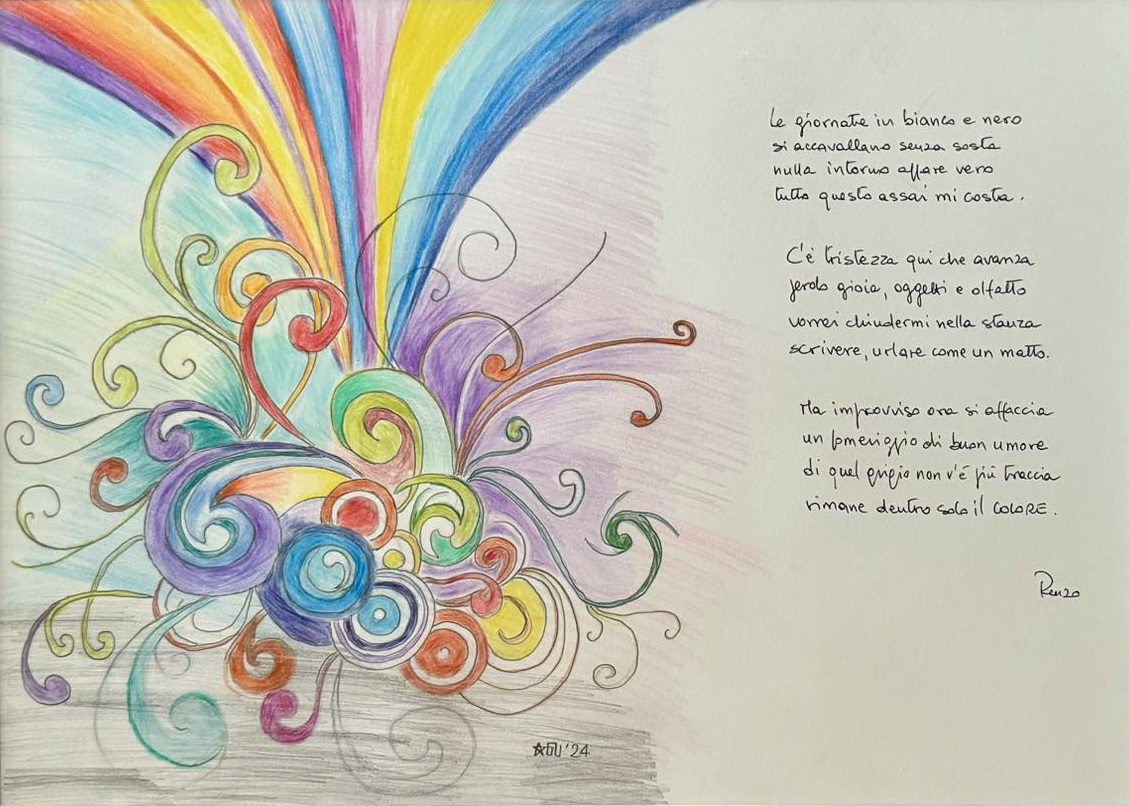 Le giornate in bianco e nero
si accavallano senza sosta
nulla intorno appare vero
tutto questo assai mi costa.
C'è tristezza qui che avanza
perdo gioia, oggetti e olfatto
vorrei chiudermi nella stanza
scrivere, urlare come un matto.
Ma improvviso ora si affaccia
un pomeriggio di buon umore
di quel grigio non v'è più traccia
rimane dentro solo il COLORE.
Renzo
'24